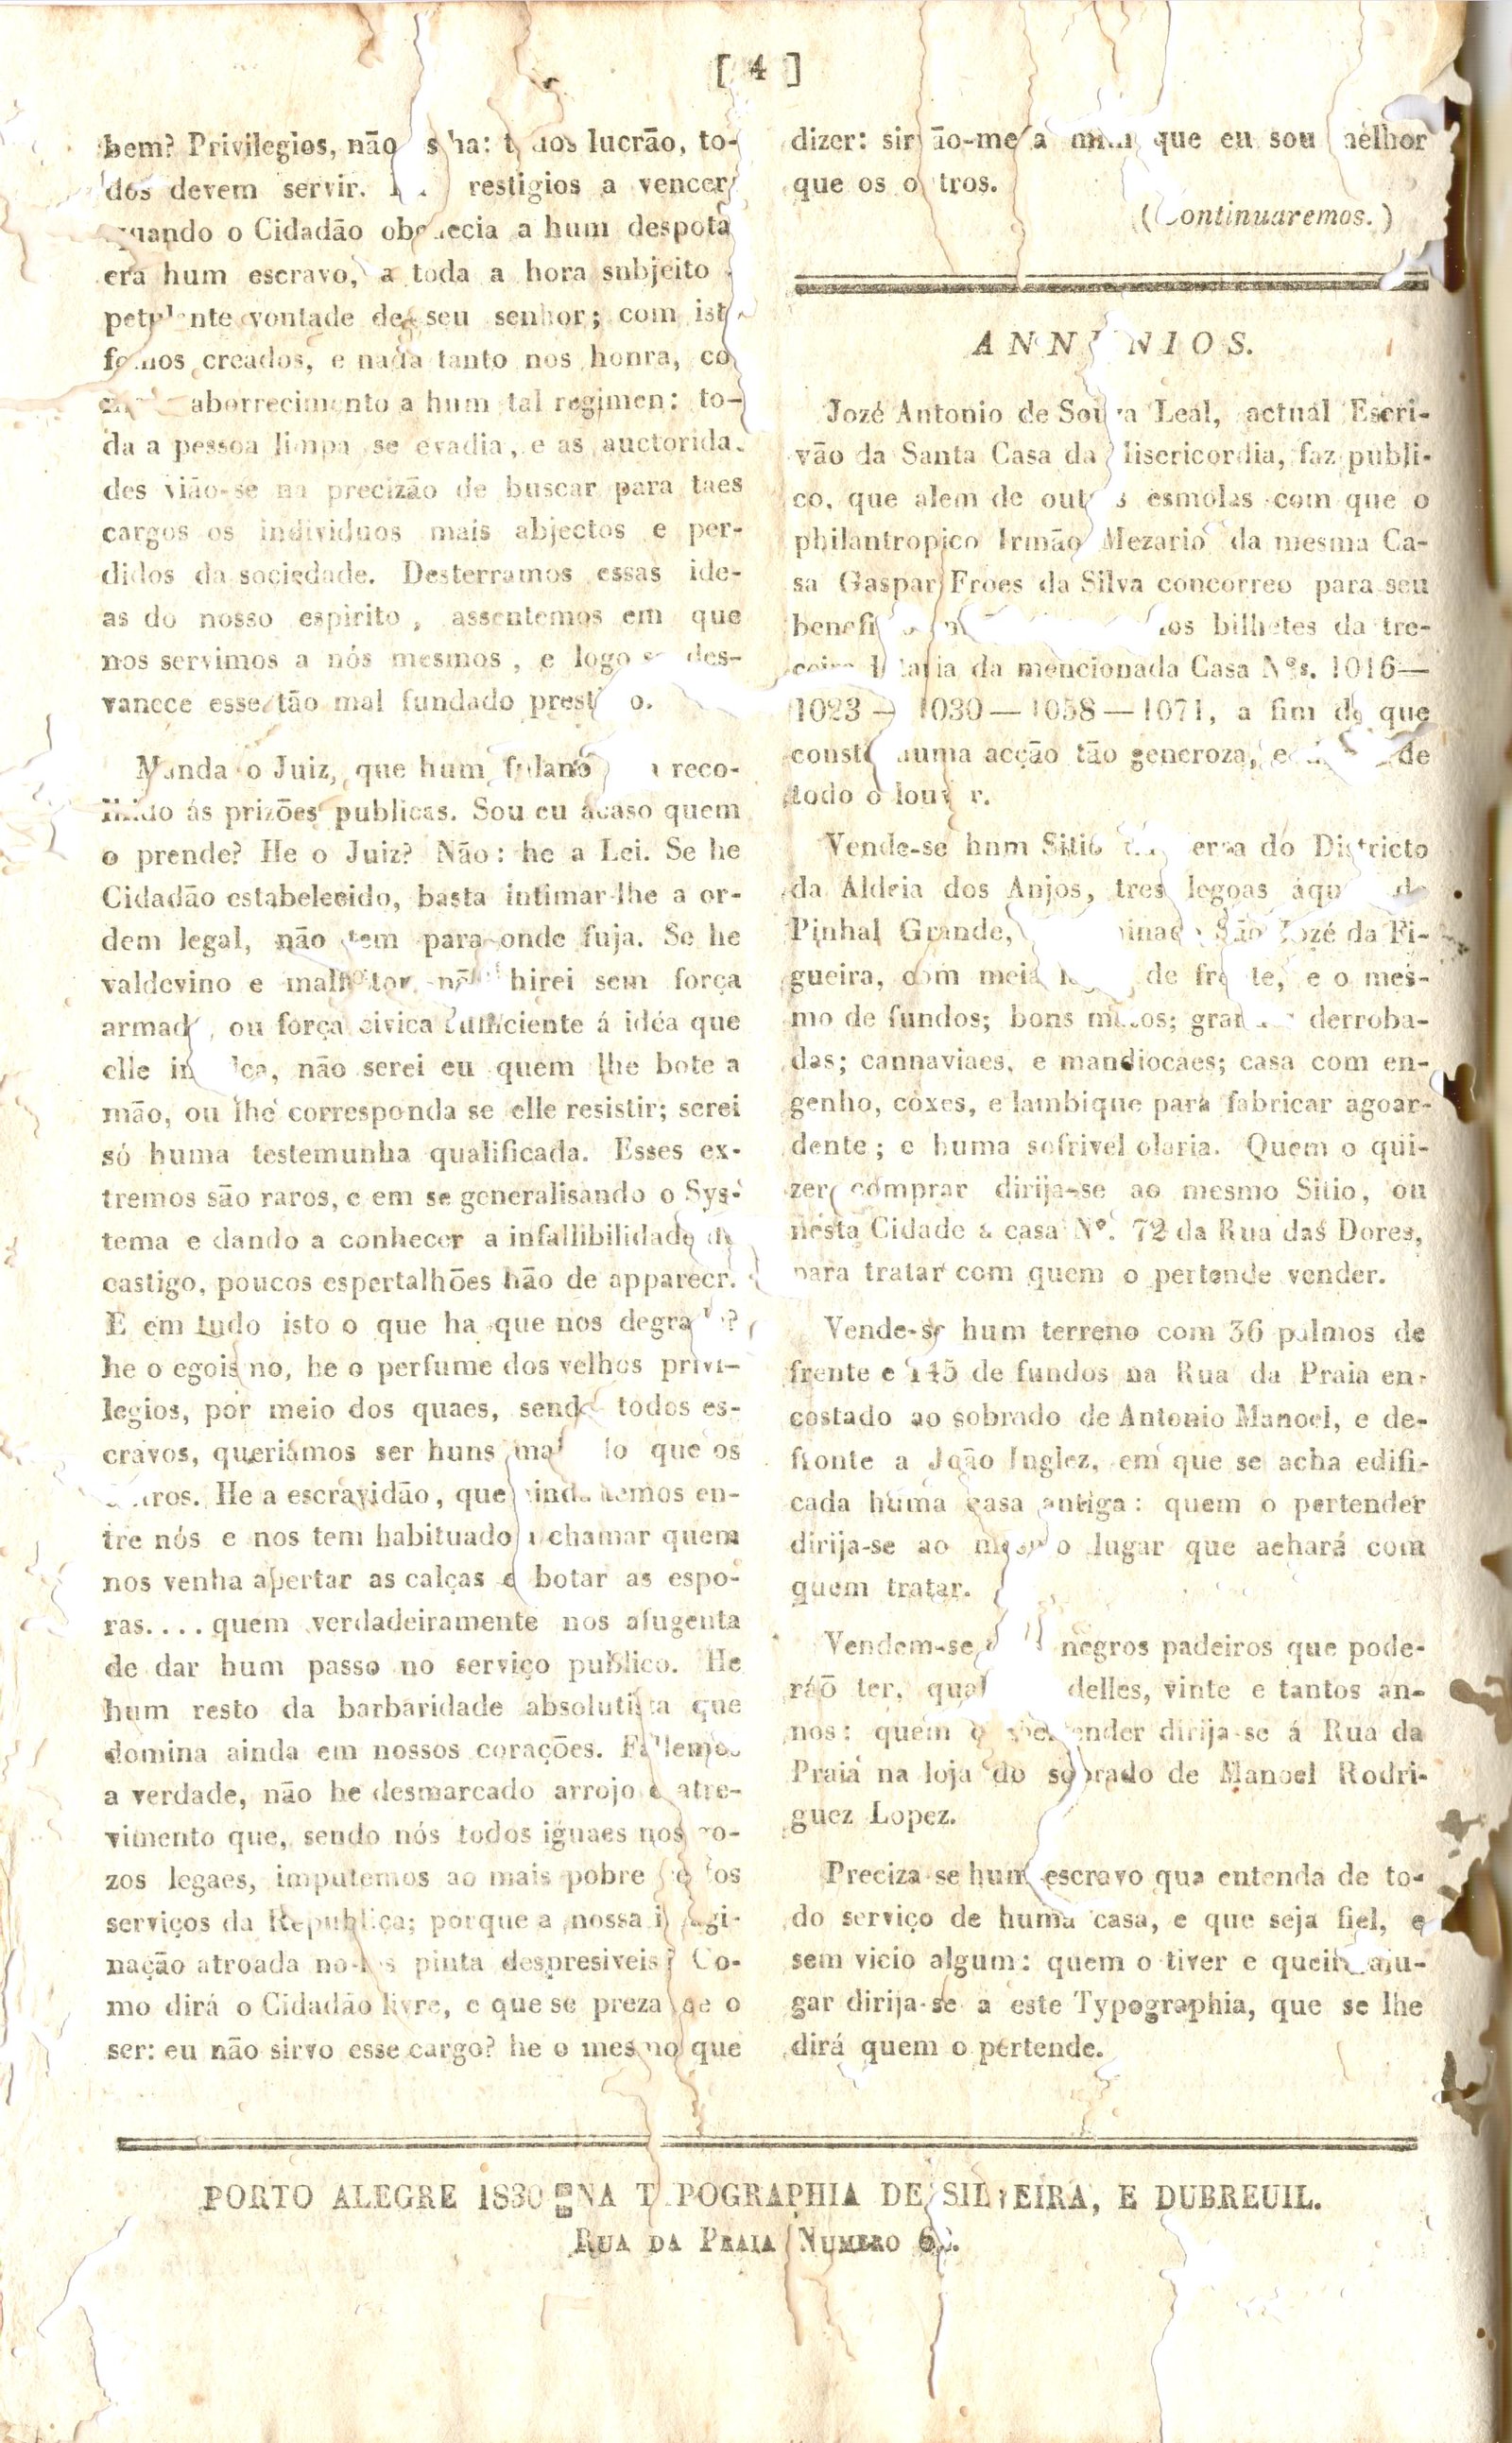 [ 4 ]
bem? Privilegios, não ha: lucrão, to-
dos devem servir. restigios a vencer
quando o Cidadão obedecia a hum despota
era hum escravo, a toda a hora subjeito
petulante vontade de seu senhor; com isto
fomos creados, e nada tanto nos honra, co
aborrecimento a hum tal regimen: to-
da a pessoa limpa se evadia, e as auctorida-
des vião-se na precizão de buscar para taes
cargos os individuos mais abjectos e per-
didos da sociedade. Desterramos essas ide-
as do nosso espirito, assentemos em que
nos servimos a nós mesmos, e logo se des-
vanece esse tão mal fundado prest o.
Manda o Juiz, que hum fulano reco-
lhido ás prizões publicas. Sou eu acaso quem
o prende? He o Juiz? Não: he a Lei. Se he
Cidadão estabelecido, basta intimar-lhe a or-
dem legal, não tem para onde fuja. Se he
valdevino e malfeitor, não hirei sem força
armada, ou força civica sufficiente á idéa que
elle in lca, não serei eu quem lhe bote a
mão, ou lhe corresponda se elle resistir; serei
só huma testemunha qualificada. Esses ex-
tremos são raros, e em se generalisando o Sys-
tema e dando a conhecer a infallibilidade do
castigo, poucos espertalhões hão de apparecr.
E em tudo isto o que ha que nos degrade?
he o egoismo, he o perfume dos velhos privi-
legios, por meio dos quaes, sendo todos es-
cravos, queriamos ser huns mais do que os
outros. He a escravidão, que ainda temos en-
tre nós e nos tem habituado a chamar quem
nos venha apertar as calças e botar as espo-
ras.... quem verdadeiramente nos afugenta
de dar hum passo no serviço publico. He
hum resto da barbaridade absolutista que
domina ainda em nossos corações. Fallemos
a verdade, não he desmarcado arrojo e atre-
vimento que, sendo nós todos iguaes nos go-
zos legaes, imputemos ao mais pobre os
serviços da Republica; porque a nossa imagi-
nação atroada no-los pinta despresiveis? Co-
mo dirá o Cidadão livre, e que se preza de o
ser: eu não sirvo esse cargo? he o mesmo que
dizer: sirvão-me a mim que eu sou melhor
que os outros.
(Continuaremos.)
ANN NIOS.
Jozé Antonio de Souza Leal, actual Escri-
vão da Santa Casa da Misericordia, faz publi-
co, que alem de outras esmolas com que o
philantropico Irmão Mezario da mesma Ca-
sa Gaspar Froes da Silva concorreo para seu
benefi os bilhetes da tre-
ceira Lotaria da mencionada Casa Nºs. 1016—
1023 — 1030 — 1058 — 1071, a fim de que
conste huma acção tão generoza, e de
todo o louvor.
Vende-se hum Sitio erra do Districto
da Aldeia dos Anjos, tres legoas áquem do
Pinhal Grande, São Jozé da Fi-
gueira, com meia legoa de frente, e o mes-
mo de fundos; bons matos; grandes derroba-
das; cannaviaes, e mandiocaes; casa com en-
genho, coxes, e lambique para fabricar agoar-
dente; e huma sofrivel olaria. Quem o qui-
zer comprar dirija-se ao mesmo Sitio, ou
nesta Cidade a casa Nº. 72 da Rua das Dores,
para tratar com quem o pertende vender.
Vende-se hum terreno com 36 palmos de
frente e 145 de fundos na Rua da Praia en-
costado ao sobrado de Antonio Manoel, e de-
fronte a João Inglez, em que se acha edifi-
cada huma casa antiga: quem o pertender
dirija-se ao mesmo lugar que achará com
quem tratar.
Vendem-se negros padeiros que pode-
ráõ ter, qual delles, vinte e tantos an-
nos: quem o pertender dirija-se á Rua da
Praia na loja do sobrado de Manoel Rodri-
guez Lopez.
Preciza-se hum escravo qua entenda de to-
do serviço de huma casa, e que seja fiel, e
sem vicio algum: quem o tiver e queira alu-
gar dirija-se a este Typographia, que se lhe
dirá quem o pertende.
PORTO ALEGRE 1830 NA TYPOGRAPHIA DE SILVEIRA, E DUBREUIL.
RUA DA PRAIA NUMERO